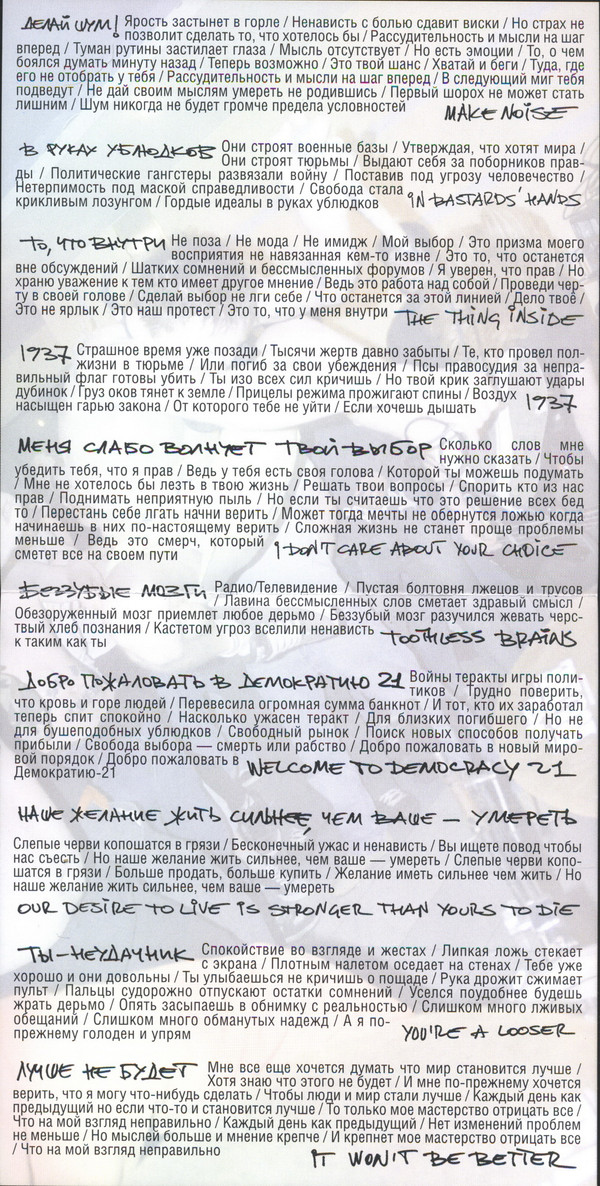 ДЕЛАЙ ШУМ! Ярость застынет в горле / Ненависть с болью сдавит виски / Но страх не
позволит сделать то, что хотелось бы / Рассудительность и мысли на шаг
вперед / Туман рутины застилает глаза / Мысль отсутствует / Но есть эмоции / То, о чем
боялся думать минуту назад / Теперь возможно / Это твой шанс / Хватай и беги / Туда, где
его не отобрать у тебя / Рассудительность и мысли на шаг вперед / В следующий миг тебя
подведут / Не дай своим мыслям умереть не родившись / Первый шорох не может стать
лишним / Шум никогда не будет громче предела условностей MAKE NOISE
В РУКАХ УБЛЮДКОВ Они строят военные базы / Утверждая, что хотят мира /
Они строят тюрьмы / Выдают себя за поборников прав-
ды / Политические гангстеры развязали войну / Поставив под угрозу человечество /
Нетерпимость под маской справедливости / Свобода стала
крикливым лозунгом / Гордые идеалы в руках ублюдков IN BASTARDS' HANDS
ТО, ЧТО ВНУТРИ Не поза / Не мода / Не имидж / Мой выбор / Это призма моего
восприятия не навязанная кем-то извне / Это то, что останется
вне обсуждений / Шатких сомнений и бессмысленных форумов / Я уверен, что прав / Но
храню уважение к тем кто имеет другое мнение / Ведь это работа над собой / Проведи чер-
ту в своей голове / Сделай выбор не лги себе / Что останется за этой линией / Дело твоё /
Это не ярлык / Это наш протест / Это то, что у меня внутри THE THING INSIDE
1937 Страшное время уже позади / Тысячи жертв давно забыты / Те, кто провел пол-
жизни в тюрьме / Или погиб за свои убеждения / Псы правосудия за непра-
вильный флаг готовы убить / Ты изо всех сил кричишь / Но твой крик заглушают удары
дубинок / Груз оков тянет к земле / Прицелы режима прожигают спины / Воздух
насыщен гарью закона / От которого тебе не уйти / Если хочешь дышать 1937
МЕНЯ СЛАБО ВОЛНУЕТ ТВОЙ ВЫБОР Сколько слов мне
нужно сказать / Чтобы
убедить тебя, что я прав / Ведь у тебя есть своя голова / Которой ты можешь подумать
/ Мне не хотелось бы лезть в твою жизнь / Решать твои вопросы / Спорить кто из нас
прав / Поднимать неприятную пыль / Но если ты считаешь что это решение всех бед
то / Перестань себе лгать начни верить / Может тогда мечты не обернутся ложью когда
начинаешь в них по-настоящему верить / Сложная жизнь не станет проще проблемы
меньше / Ведь это смерч, который
сметет все на своем пути I DON'T CARE ABOUT YOUR CHOICE
БЕЗЗУБЫЕ МОЗГИ Радио/Телевидение / Пустая болтовня лжецов и трусов
/ Лавина бессмысленных слов сметает здравый смысл /
Обезоруженный мозг приемлет любое дерьмо / Беззубый мозг разучился жевать черс-
твый хлеб познания / Кастетом угроз вселили ненависть
к таким как ты TOOTHLESS BRAINS
ДОБРО ПОЖАЛОВАТЬ В ДЕМОКРАТИЮ 21 Войны теракты игры поли-
тиков / Трудно поверить,
что кровь и горе людей / Перевесила огромная сумма банкнот / И тот, кто их заработал
теперь спит спокойно / Насколько ужасен теракт / Для близких погибшего / Но не
для бушеподобных ублюдков / Свободный рынок / Поиск новых способов получать
прибыли / Свобода выбора — смерть или рабство / Добро пожаловать в новый миро-
вой порядок / Добро пожаловать в
Демократию-21 WELCOME TO DEMOCRACY 21
НАШЕ ЖЕЛАНИЕ ЖИТЬ СИЛЬНЕЕ, ЧЕМ ВАШЕ — УМЕРЕТЬ
Слепые черви копошатся в грязи / Бесконечный ужас и ненависть / Вы ищете повод чтобы
нас съесть / Но наше желание жить сильнее, чем ваше — умереть / Слепые черви копо-
шатся в грязи / Больше продать, больше купить / Желание иметь сильнее чем жить / Но
наше желание жить сильнее, чем ваше — умереть
OUR DESIRE TO LIVE IS STRONGER THAN YOURS TO DIE
ТЫ-НЕУДАЧНИК Спокойствие во взгляде и жестах / Липкая ложь стекает
с экрана / Плотным налетом оседает на стенах / Тебе уже
хорошо и они довольны / Ты улыбаешься не кричишь о пощаде / Рука дрожит сжимает
пульт / Пальцы судорожно отпускают остатки сомнений / Уселся поудобнее будешь
жрать дерьмо / Опять засыпаешь в обнимку с реальностью / Слишком много лживых
обещаний / Слишком много обманутых надежд / А я по-
прежнему голоден и упрям YOU'RE A LOOSER
ЛУЧШЕ НЕ БУДЕТ Мне все еще хочется думать что мир становится лучше /
Хотя знаю что этого не будет / И мне по-прежнему хочется
верить, что я могу что-нибудь сделать / Чтобы люди и мир стали лучше / Каждый день как
предыдущий но если что-то и становится лучше / То только мое мастерство отрицать все /
Что на мой взгляд неправильно / Каждый день как предыдущий / Нет изменений проблем
не меньше / Но мыслей больше и мнение крепче / И крепнет мое мастерство отрицать все
/ Что на мой взгляд неправильно IT WON'T BE BETTER